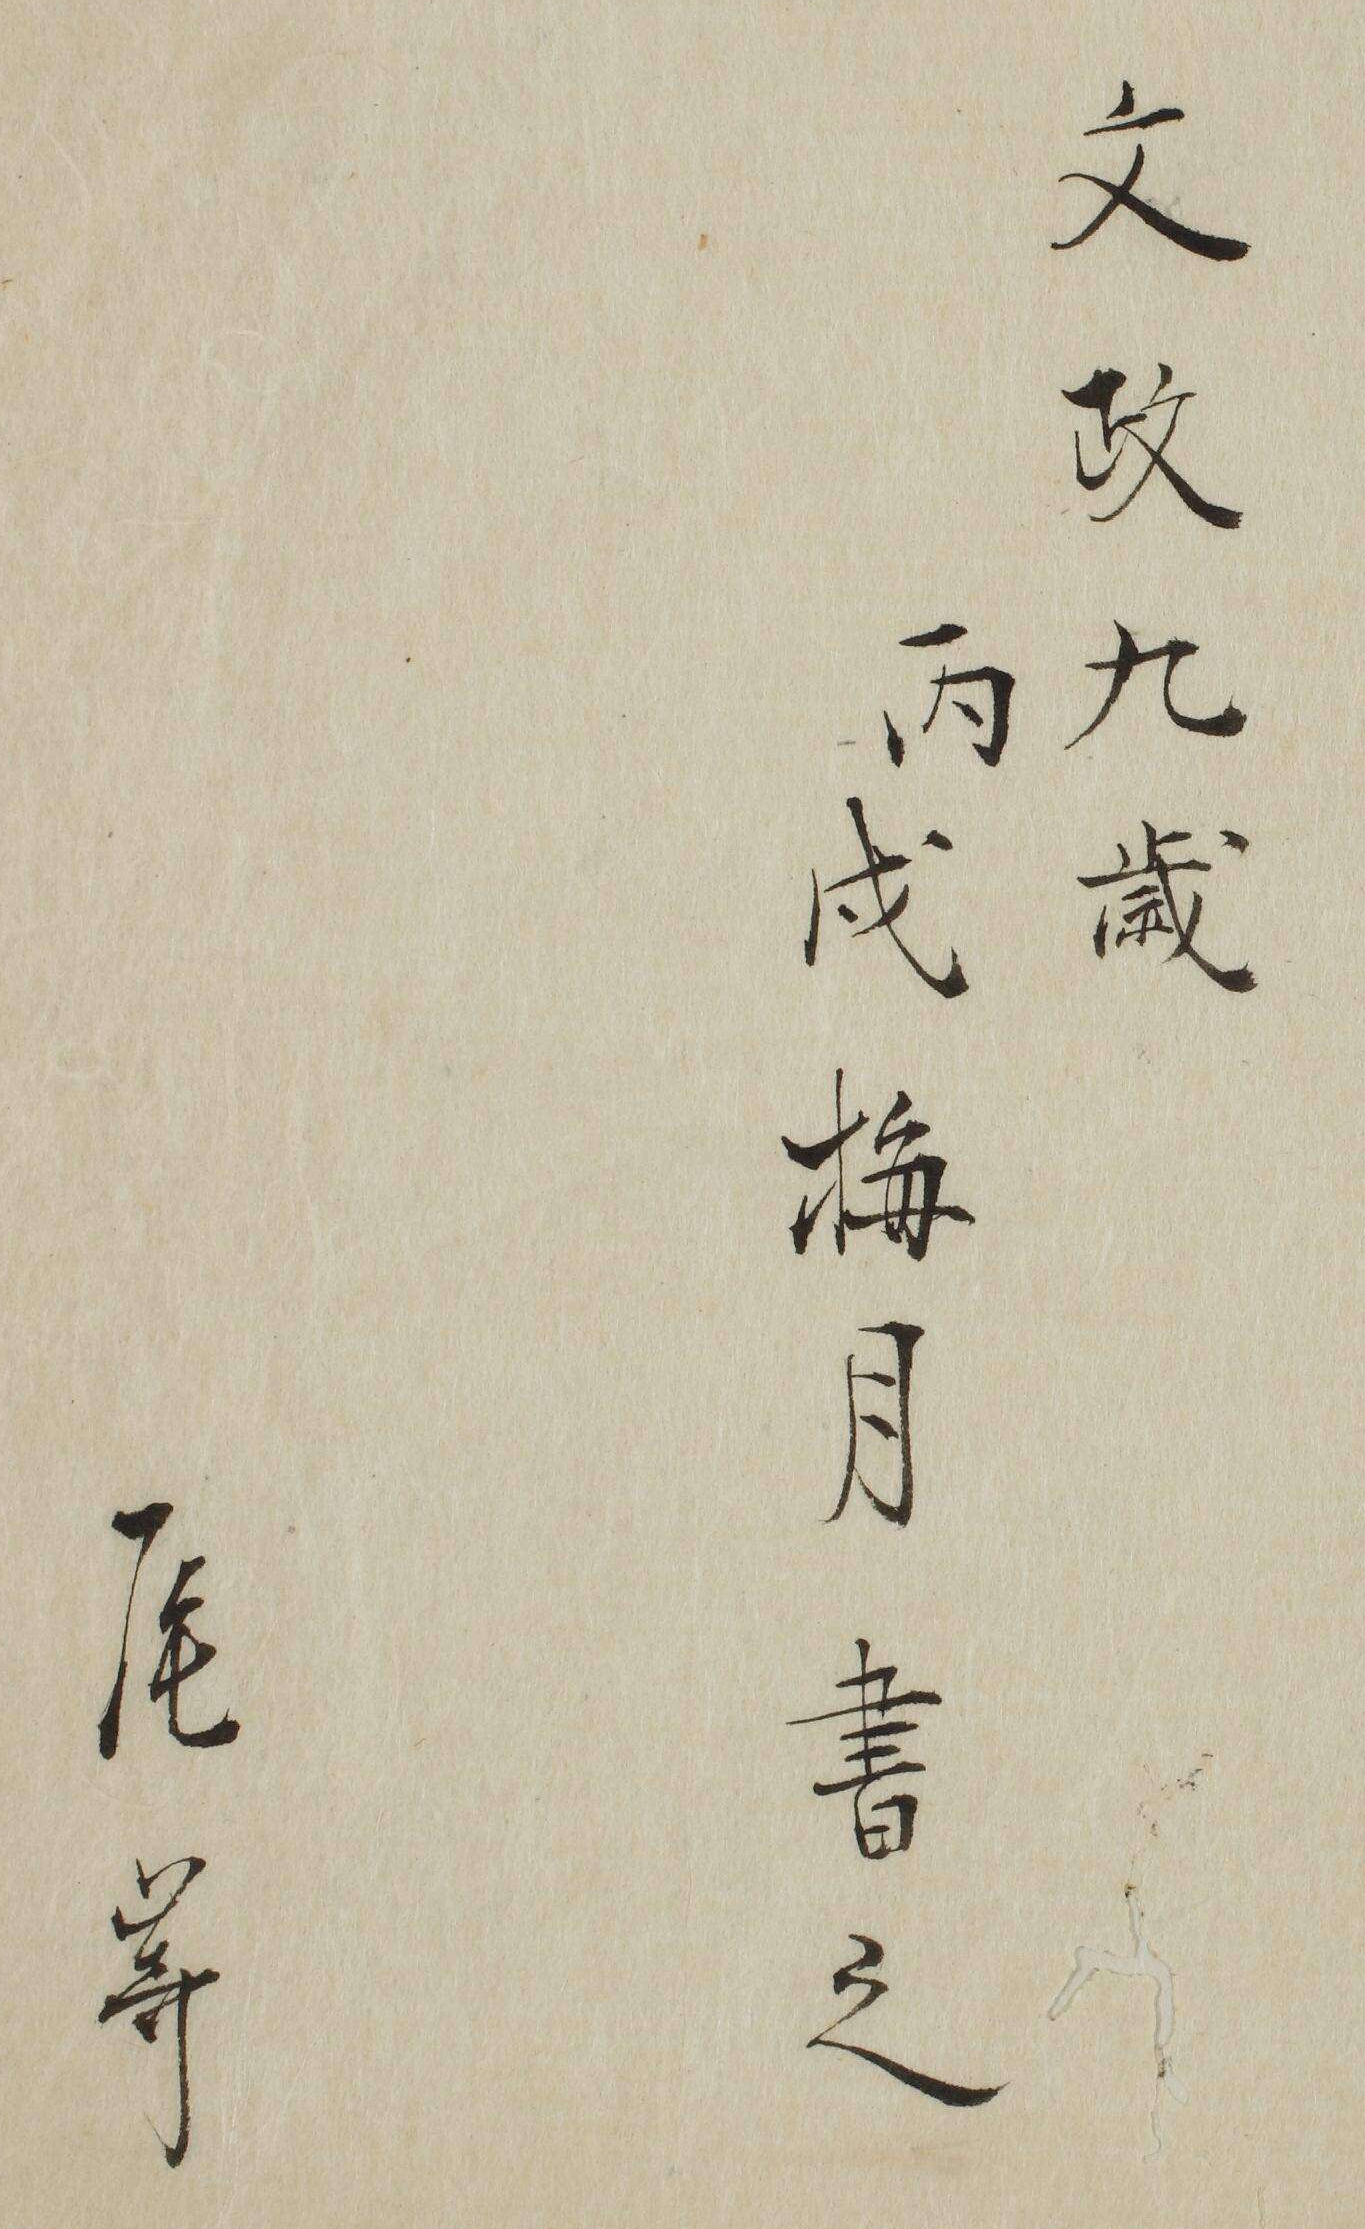 文政九歳
丙戌梅月書之
尾崎